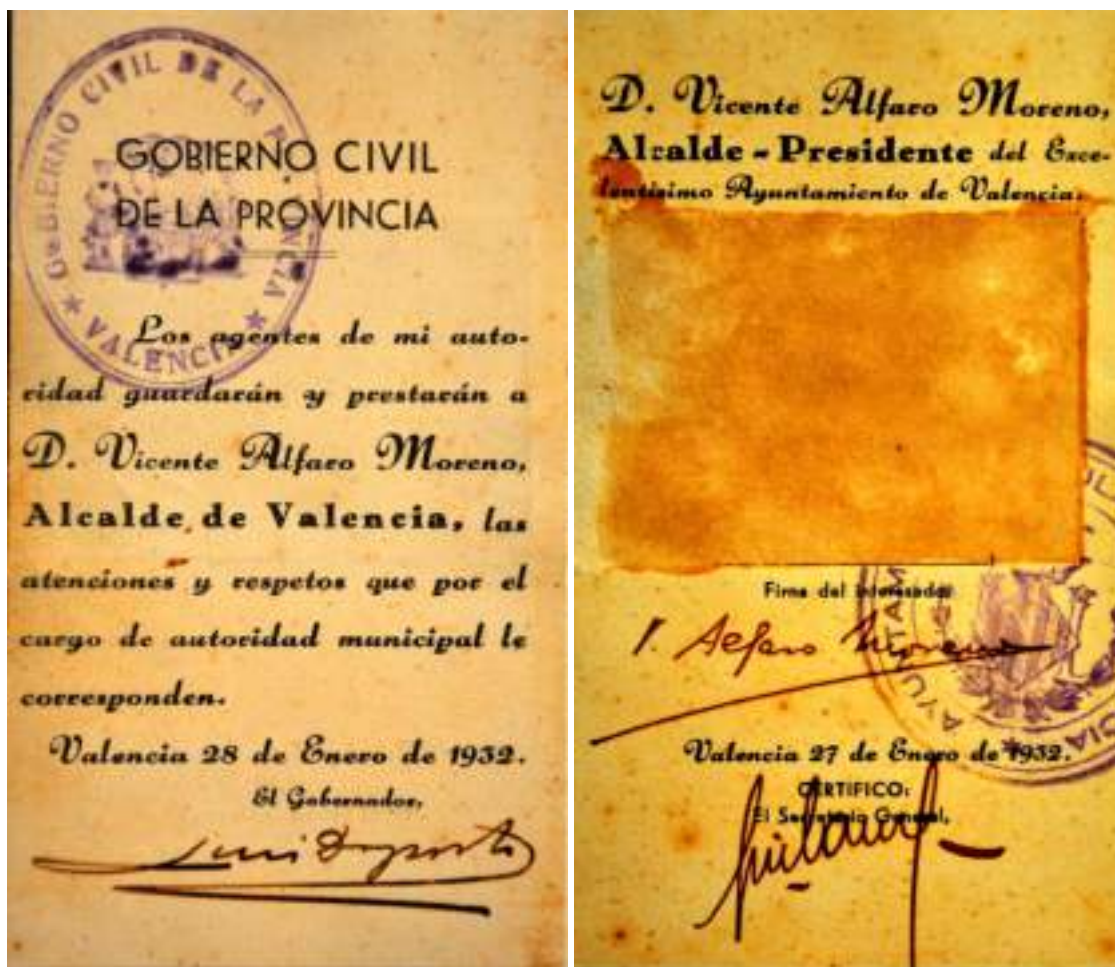 GOBIERNO CIVIL DE LA PROVINCIA
★ VALENCIA ★
GOBIERNO CIVIL
DE LA PROVINCIA
Los agentes de mi auto-
ridad guardarán y prestarán a
D. Vicente Alfaro Moreno,
Alcalde de Valencia, las
atenciones y respetos que por el
cargo de autoridad municipal le
corresponden.
Valencia 28 de Enero de 1932.
El Gobernador,
D. Vicente Alfaro Moreno,
Alcalde - Presidente del Exce-
lentísimo Ayuntamiento de Valencia.
Firma del interesado
V. Alfaro Moreno
Valencia 27 de Enero de 1932.
CERTIFICO:
El Secretario General,